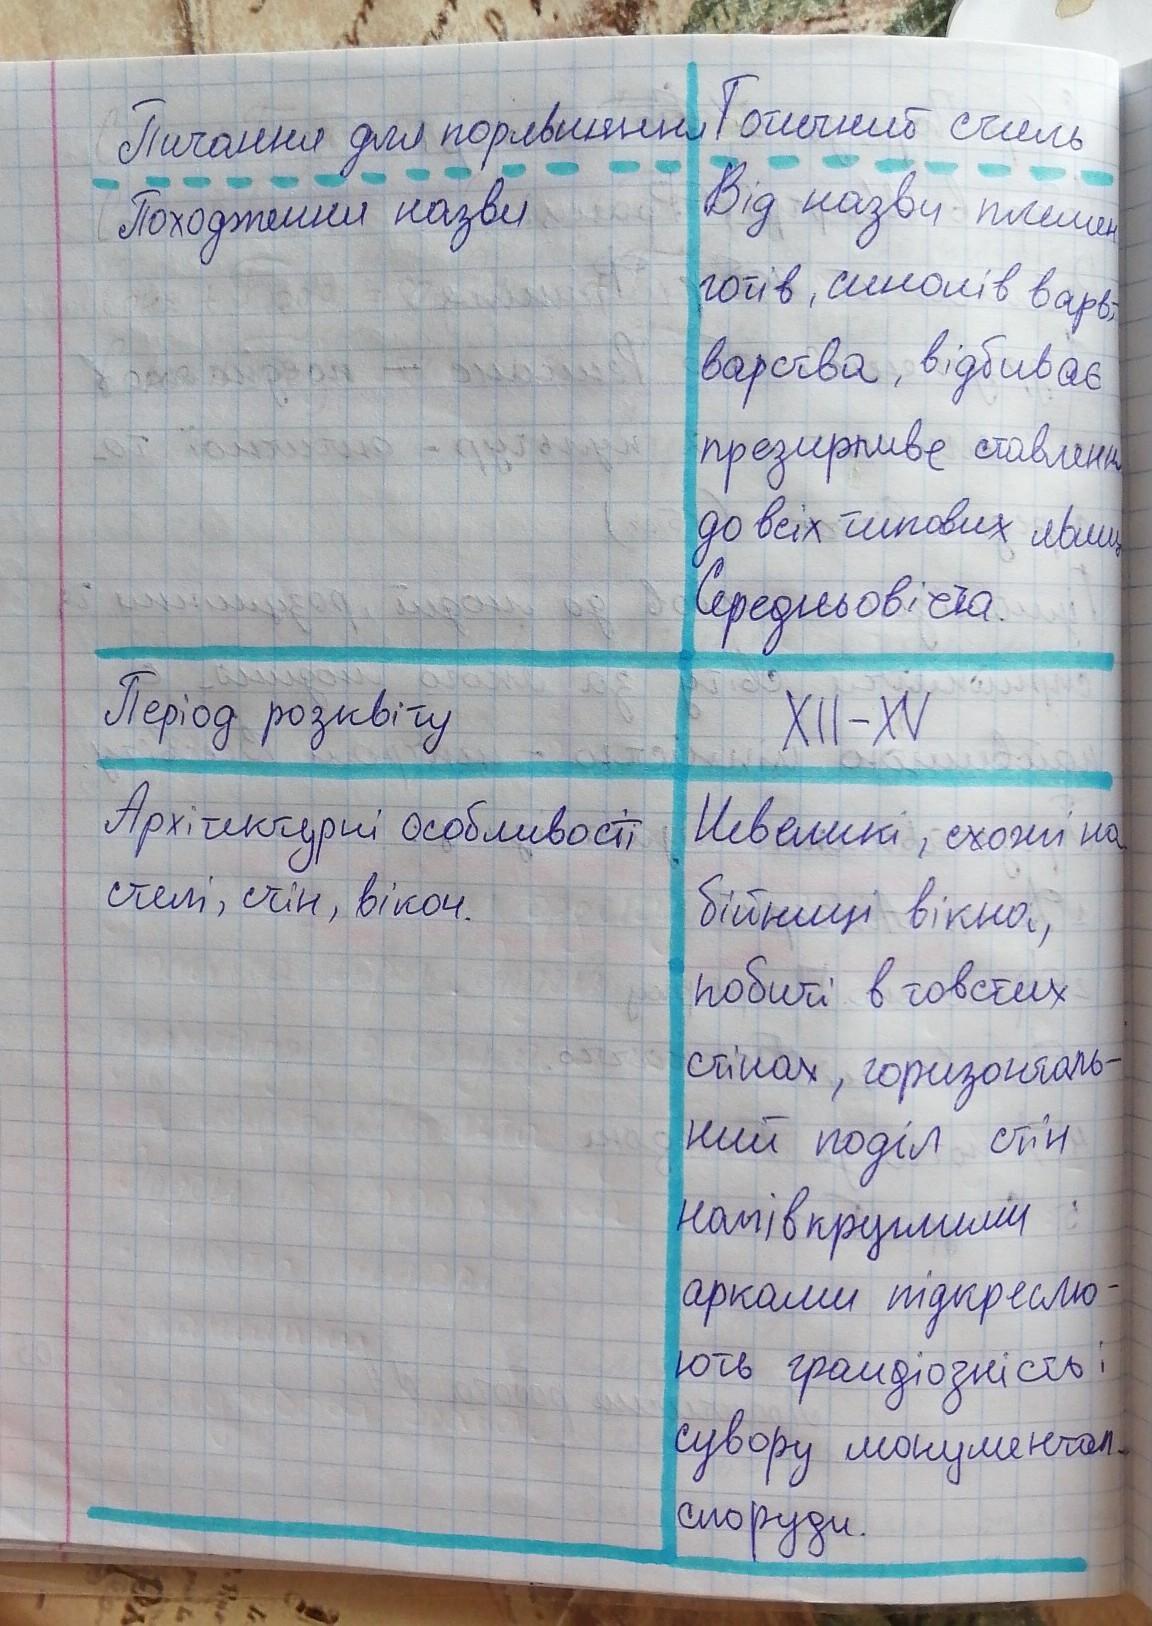 Питання для порівняння
Готичний стиль
Походження назви
Від назви племен
готів, синонів варв,
варства, відбиває
презирливе ставленн
до всіх типових явищ
Середньовіччя.
Період розквіту
XII-XV
Архітектурні особливості
стелі, стін, вікон.
Невеликі, схожі на
бійниці вікна,
побиті в товстих
стінах, горизонталь-
ний поділ стін
напівкруглими
арками підкреслю-
ють грандіозність і
сувору монументал.
споруди.